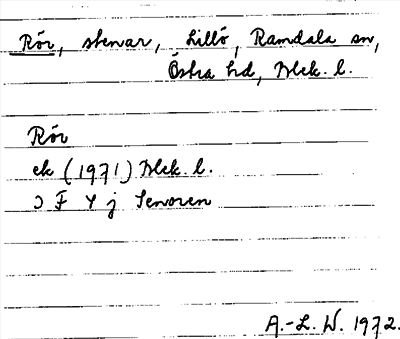 Rör, stenar, Lillö, Ramdala sn,
Östra hd, Blek. l.
Rör
ek (1971) Blek. l.
3 F 4 j Senoren
A.-L. W. 1972.